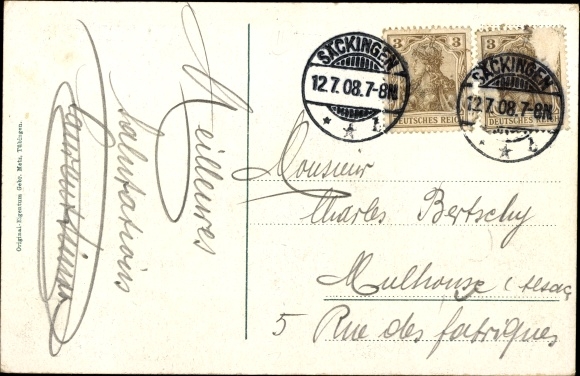 Original-Eigentum Gebr. Metz, Tübingen.
Meilleures
salutations
SÄCKINGEN
12.7.08.7-8N
* * 1.
3 3
DEUTSCHES REICH
SÄCKINGEN
12.7.08.7-8N
* * 1.
3
DEUTSCHES REICH
Monsieur
Charles Bertschy
Mulhouse
5 Rue des fabriques